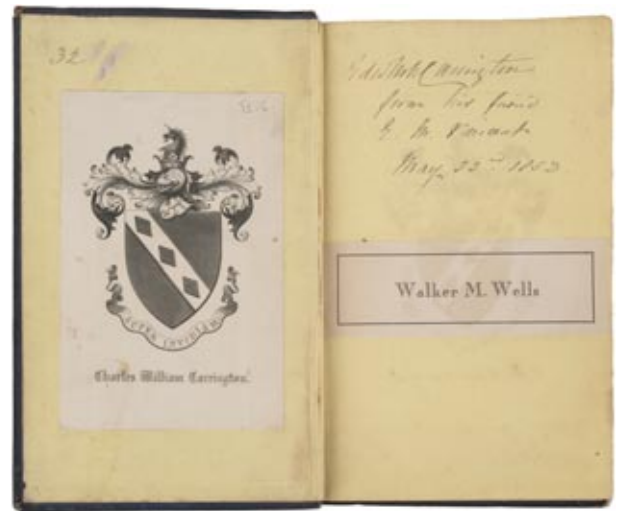 32
Charles William Carrington.
Carrington
from his friend
E. M.
May 22nd 1853
Walker M. Wells